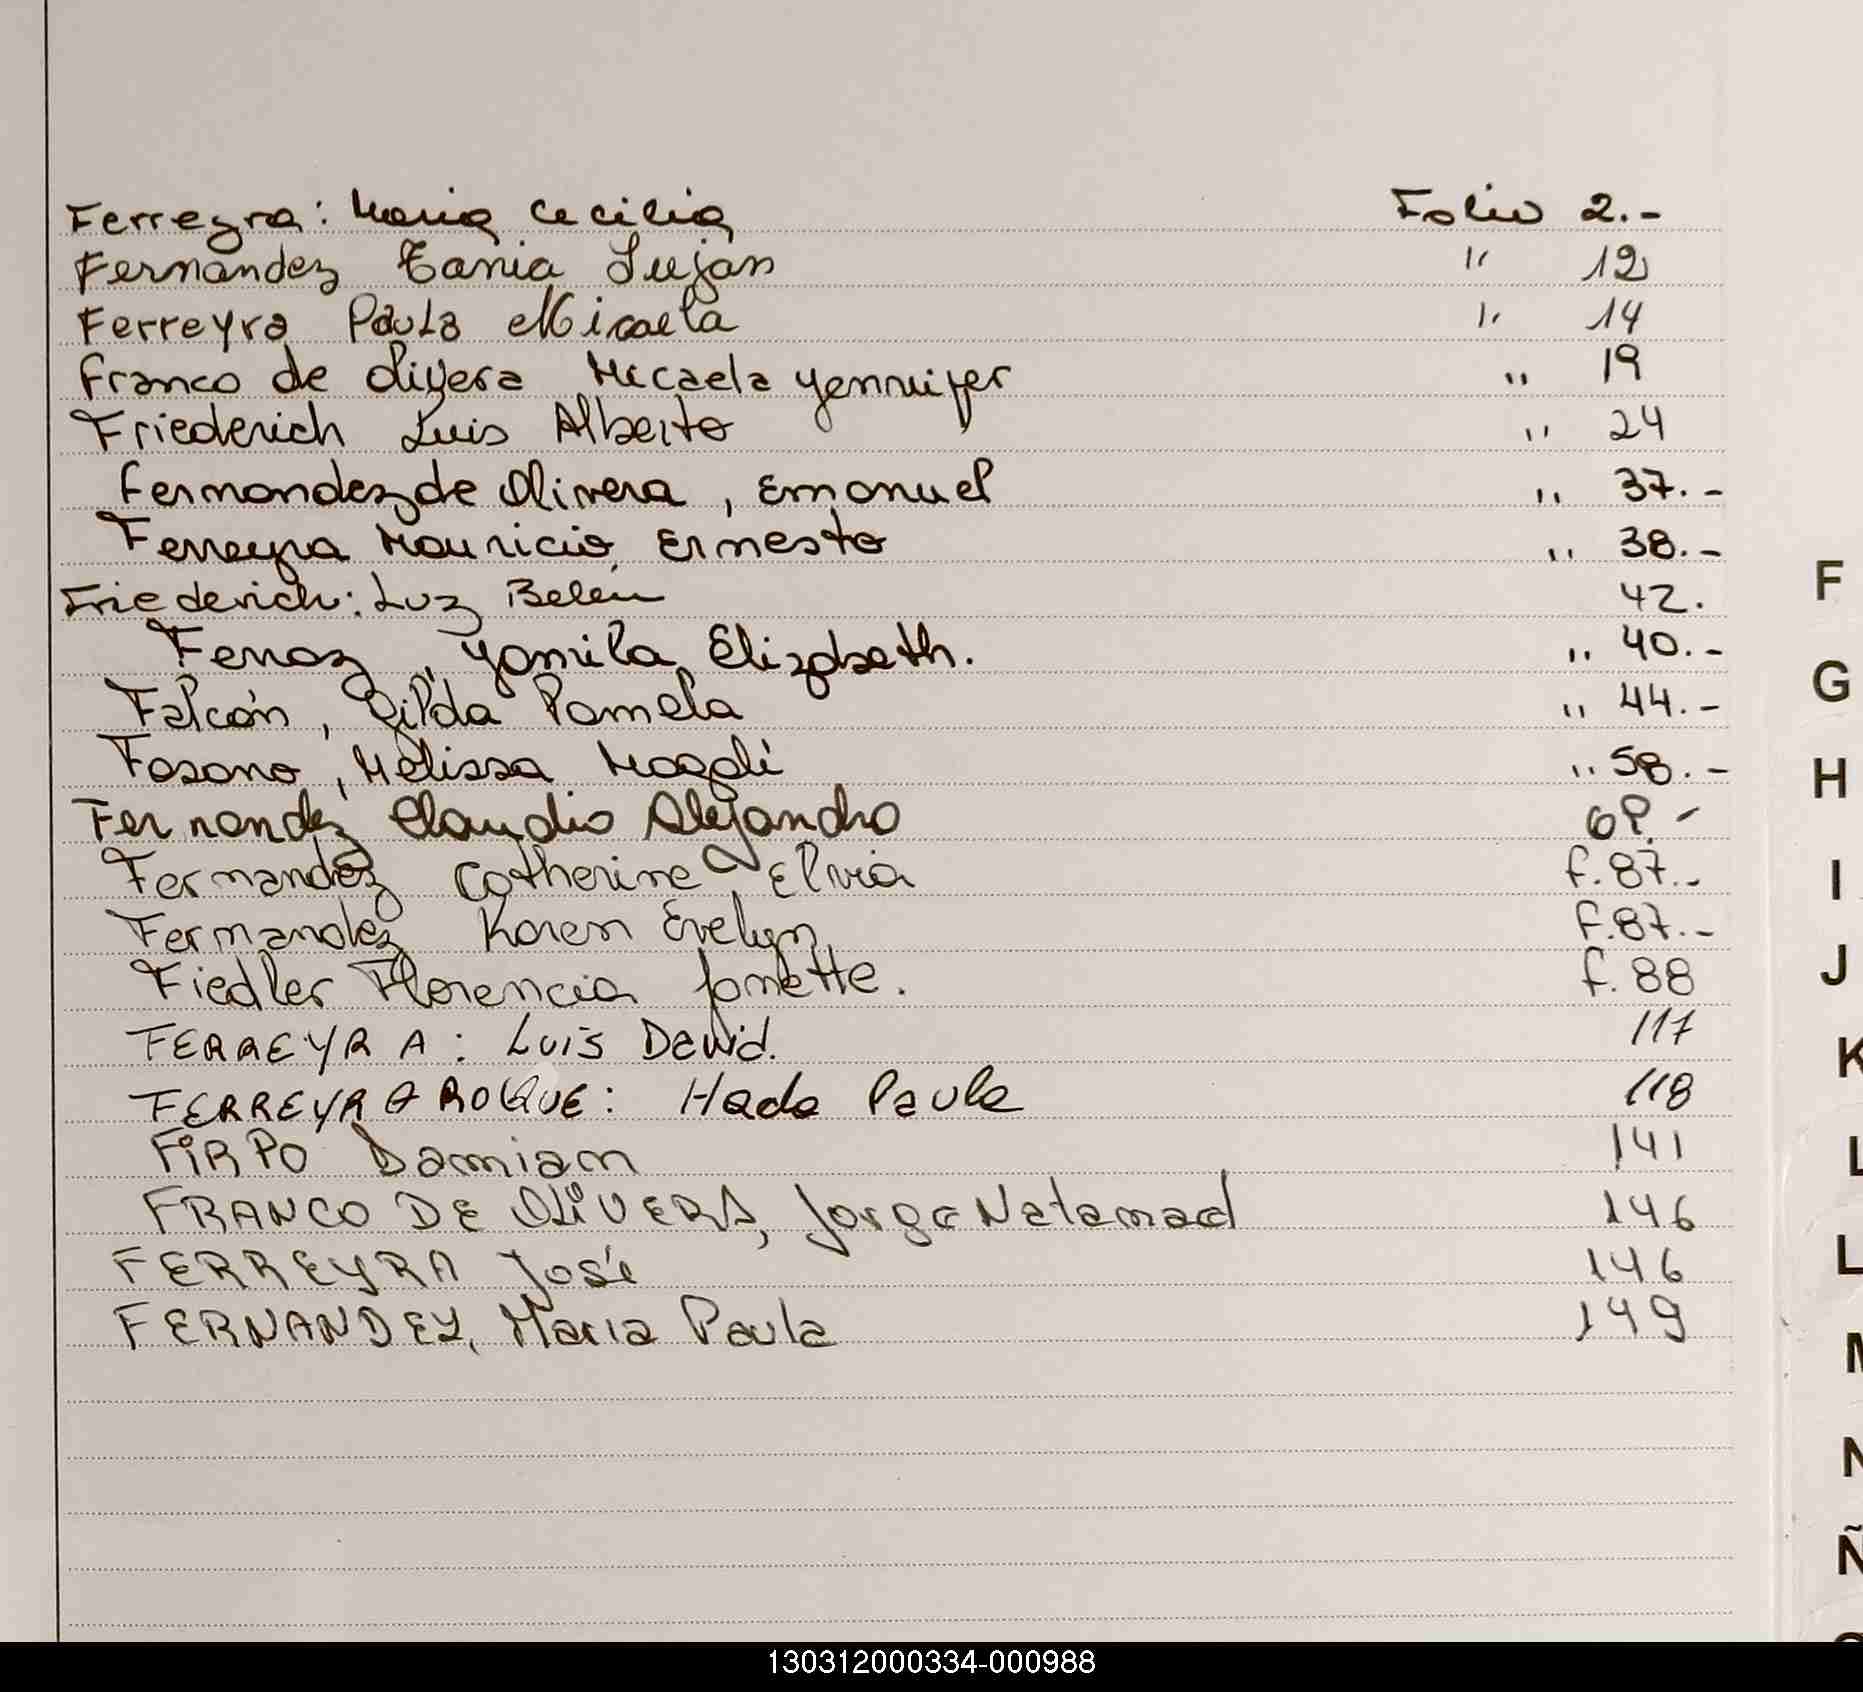 Ferreyra: Maria Cecilia Folio 2.-
Fernandez Tania Lujan " 12
Ferreyra Paula Micaela " 14
Franco de Olivera Micaela Yennuifer " 19
Friederich Luis Alberto " 24
Fernandez de Olivera, Emanuel " 37.-
Ferreyra Mauricio Ernesto " 38.-
Friederich: Luz Belén 42.
Ferraz, Yamila Elizabeth. " 40.-
Falcón, Gilda Pamela " 44.-
Fasano, Melissa Magali " 58.-
Fernandez Claudio Alejandro 69.-
Fernandez Catherine Elvia f. 87.-
Fernandez Karen Evelyn f. 87.-
Fiedler Florencia Janette. f. 88
FERREYRA: Luis David. 117
FERREYRA ROQUE: Hada Paula 118
FIRPO Damian 141
FRANCO DE OLIVERA, Jorge Natanael 146
FERREYRA José 146
FERNANDEZ, Maria Paula 149
F
G
H
I
J
K
L
L
M
N
Ñ
130312000334-000988